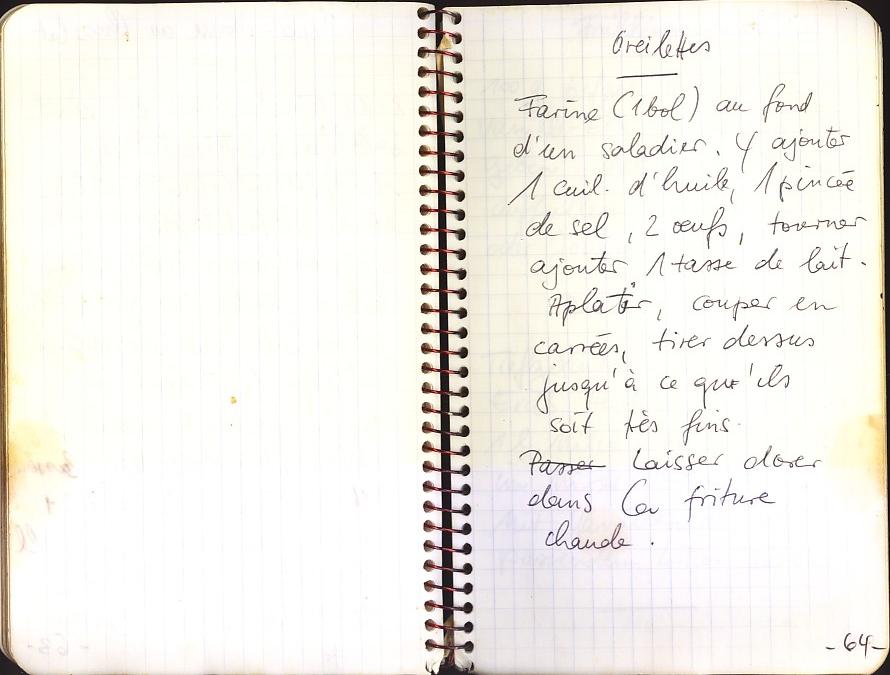 Oreilettes
Farine (1 bol) au fond
d'un saladier. Y ajouter
1 cuil. d'huile, 1 pincée
de sel, 2 œufs, tourner
ajouter 1 tasse de lait.
Aplatir, couper en
carrées, tirer dessus
jusqu'à ce qu'ils
soit très fins.
Passer Laisser dorer
dans la friture
chaude.
-64-